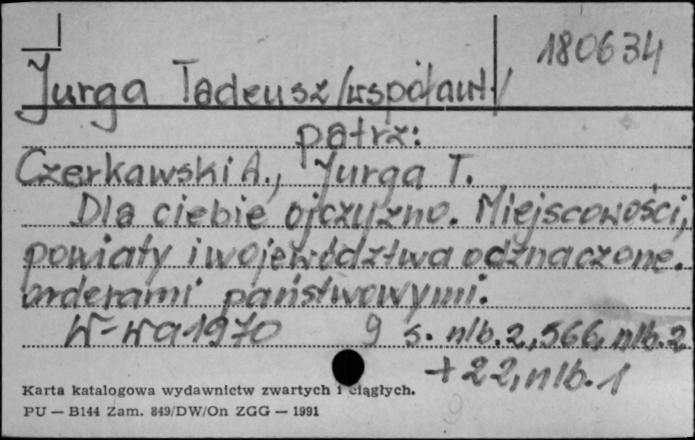 180634
Jurga Tadeusz /współaut./
patrz:
Czerkawski A., Jurga T.
Dla ciebie ojczyzno. Miejscowości,
powiaty i województwa odznaczone
orderami państwowymi.
W-wa 1970 9 s. nlb. 2, 566, nlb. 2
+ 22, nlb. 1
Karta katalogowa wydawnictw zwartych i ciągłych.
PU — B144 Zam. 849/DW/On ZGG — 1991
9